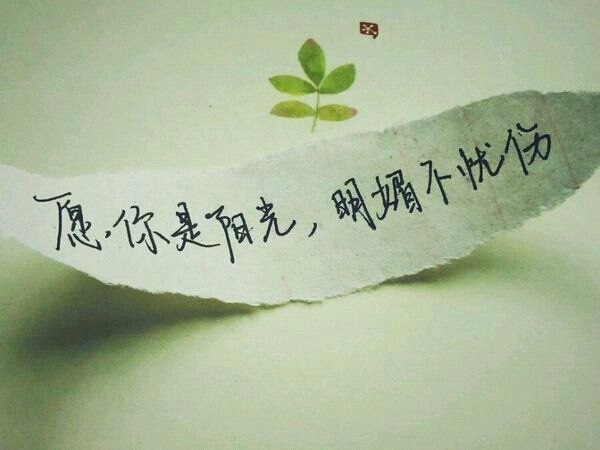 愿，你是阳光，明媚不忧伤